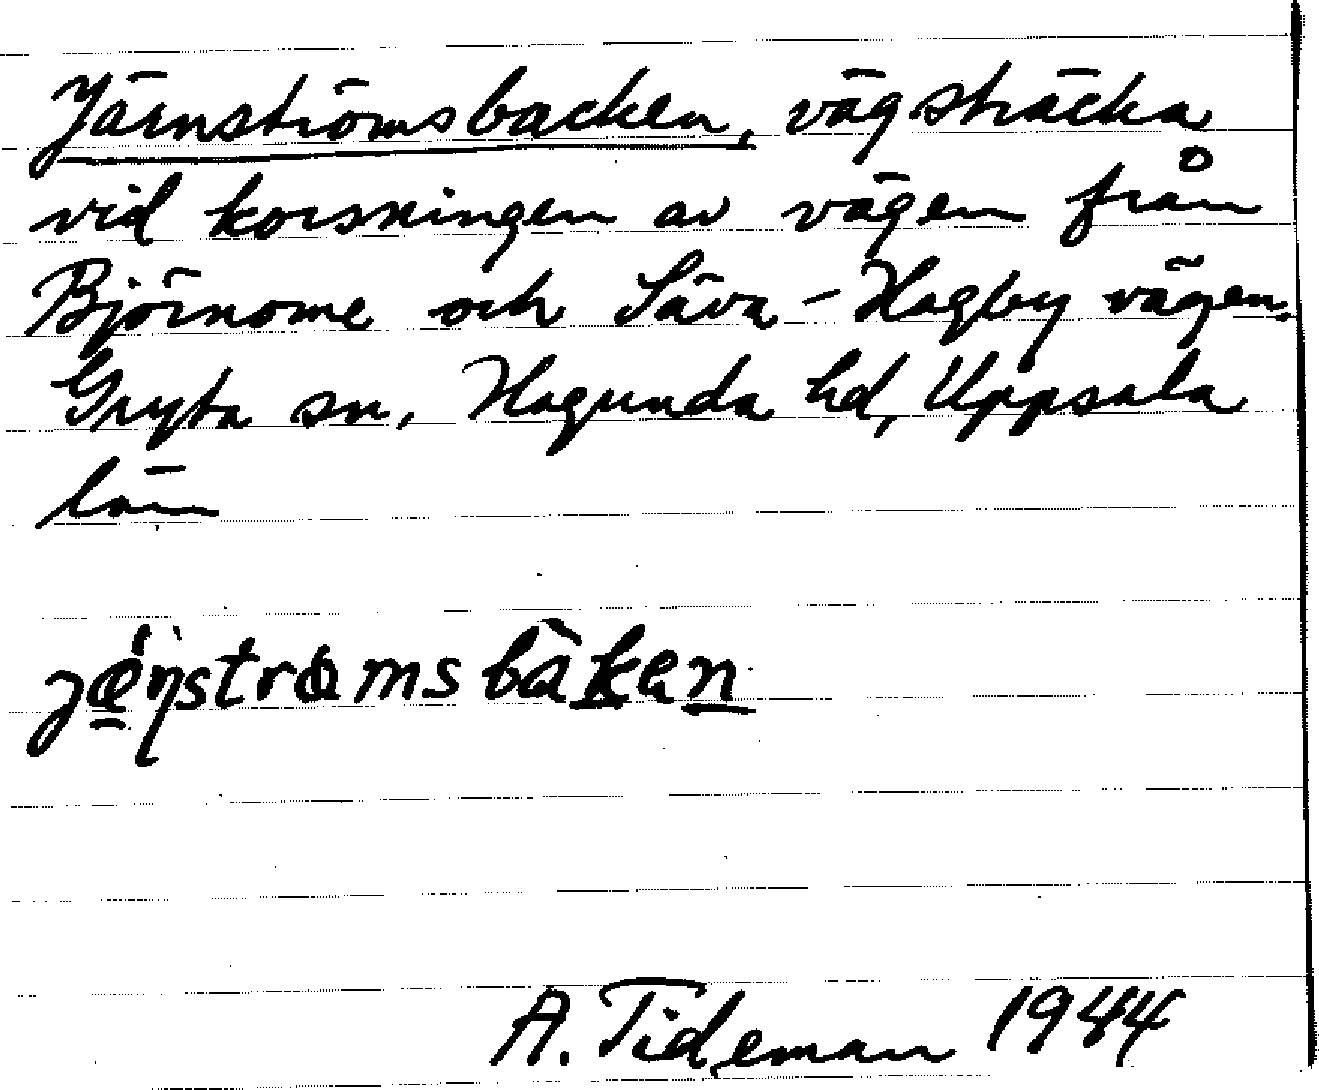 Järnströmsbacken, vägsträcka
vid korsningen av vägen från
Björnome och Säva - Hagby vägen.
Gryta sn, Hagunda hd, Uppsala
län
A. Tideman 1944